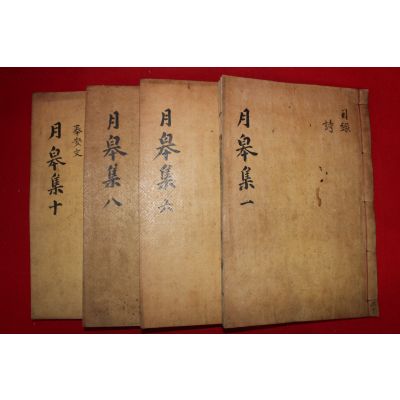 目錄
詩
月皐集一
月皐集六
月皐集八
月皐集十